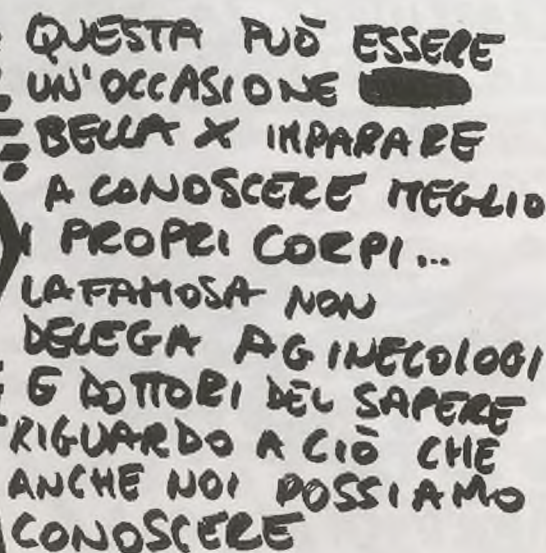 QUESTA PUÒ ESSERE
UN'OCCASIONE
BELLA X IMPARARE
A CONOSCERE MEGLIO
I PROPRI CORPI...
LA FAMOSA NON
DELEGA A GINECOLOGI
E DOTTORI DEL SAPERE
RIGUARDO A CIÒ CHE
ANCHE NOI POSSIAMO
CONOSCERE